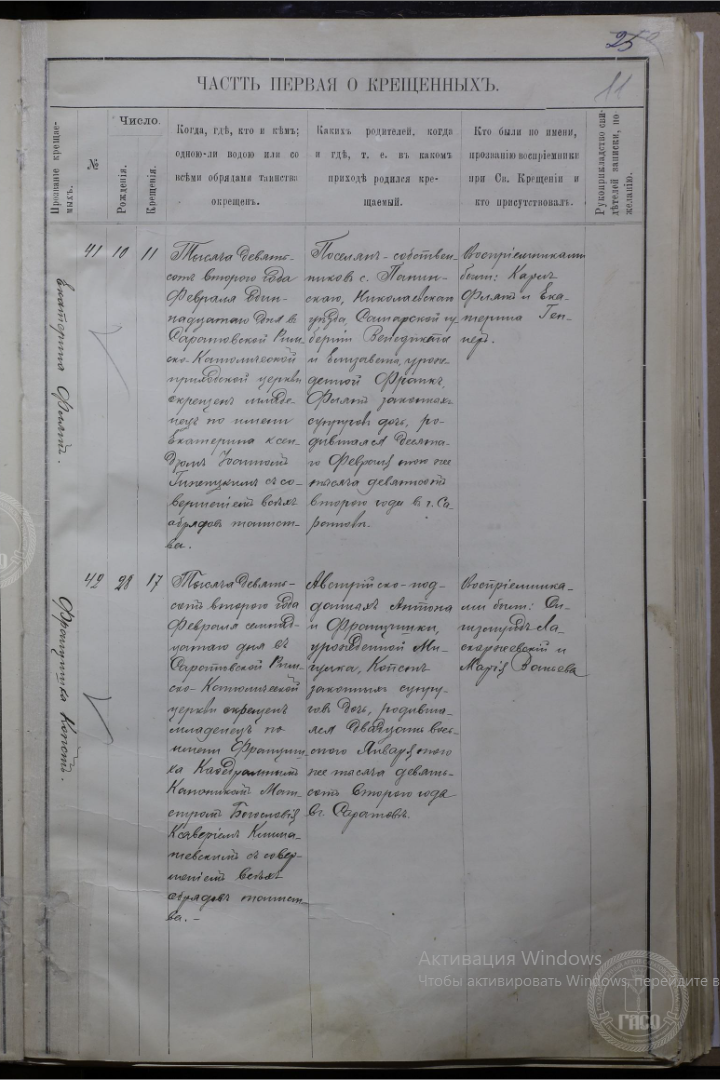 25
11
ЧАСТТЬ ПЕРВАЯ О КРЕЩЕННЫХЪ.
Прозваніе крещае-
мыхъ.
№
Число.
Рожденія.
Крещенія.
Когда, гдѣ, кто и кѣмъ;
одною-ли водою или со
всѣми обрядами таинства
окрещенъ.
Какихъ родителей, когда
и гдѣ, т. е. въ какомъ
приходѣ родился кре-
щаемый.
Кто были по имени,
прозванію воспріемники
при Св. Крещеніи и
кто присутствовалъ.
Рукоприкладство сви-
дѣтелей записки, по
желанію.
Екатерина
41 10 11
Тысяча девять-
сотъ второго года
Февраля один-
надцатаго дня въ
Саратовской Рим-
ско-Католической
приходской церкви
окрещенъ младе-
нецъ по имени
Екатерина ксен-
дзомъ
съ со-
вершеніемъ всѣхъ
обрядовъ таинст-
ва.
Поселянъ-собствен-
никовъ с. Панин-
скаго, Николаевскаго
уѣзда, Самарской гу-
берніи Венедикта
и Елизаветы, урож-
денной Франкъ,
законныхъ
супруговъ дочь, ро-
дившаяся десята-
го Февраля того же
тысяча девятьсотъ
второго года въ г. Са-
ратовѣ.
Воспріемниками
были: Карлъ
и Ека-
терина
Франциска
42 28 17
Тысяча девять-
сотъ второго года
Февраля семнад-
цатаго дня въ
Саратовской Рим-
ско-Католической
церкви окрещенъ
младенецъ по
имени Францис-
ка Кафедральнымъ
Каноникомъ Маги-
стромъ Богословія
Ксаверіемъ Клима-
шевскимъ съ совер-
шеніемъ всѣхъ
обрядовъ таинст-
ва.-
Австрійско-под-
данныхъ Антона
и Францишки,
урожденной
законныхъ супру-
говъ дочь, родивша-
яся двадцать вось-
мого Января того
же тысяча девять-
сотъ второго года
въ г. Саратовѣ.
Воспріемника-
ми были: Си-
гизмундъ
и
Марія
Активация Windows
Чтобы активировать Windows, перейдите в
ГАСО